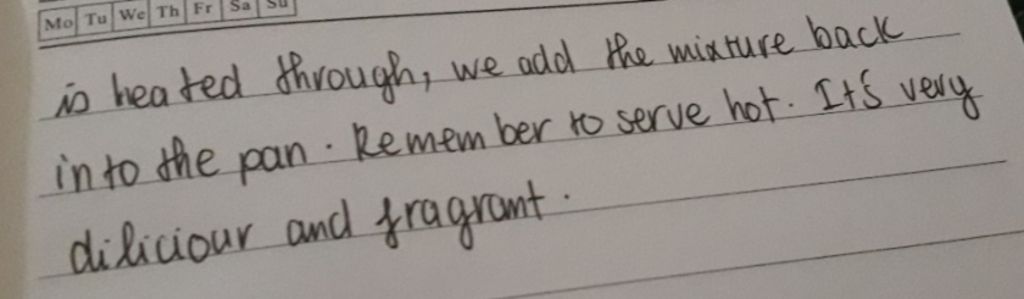 Mo Tu We Th Fr Sa Su
is heated through, we add the mixture back
into the pan. Remember to serve hot. It's very
diliciour and fragrant.